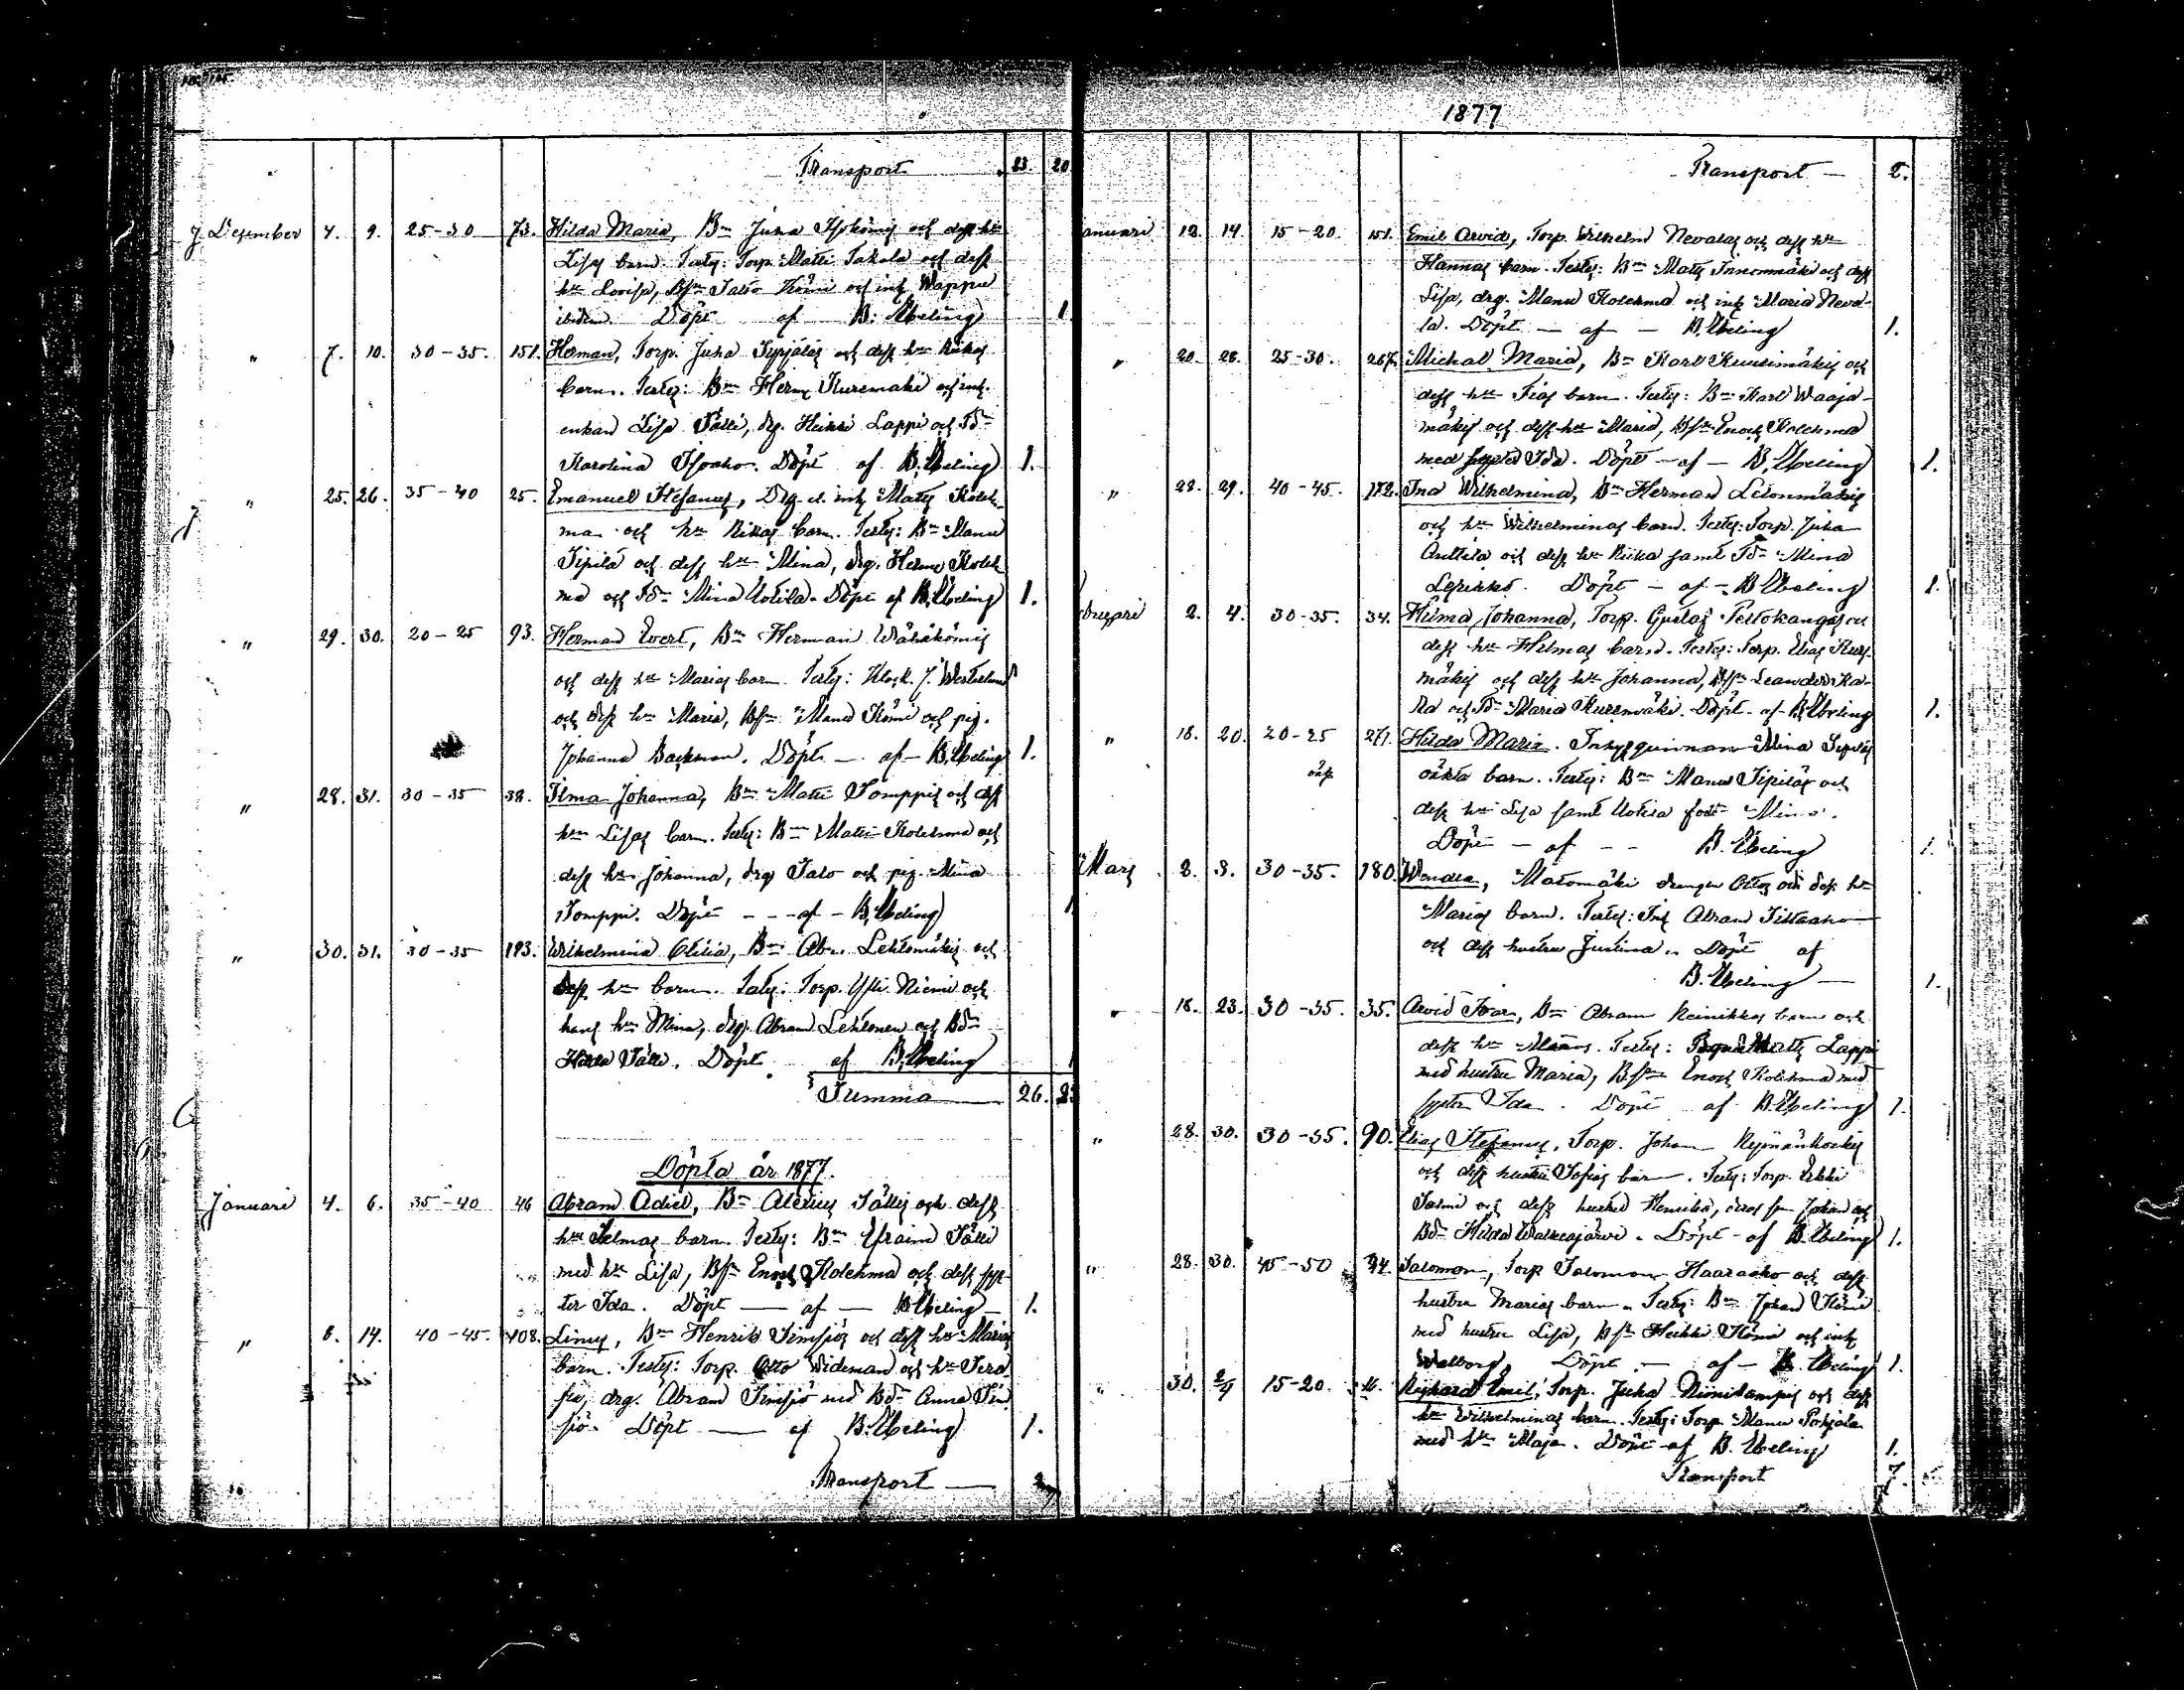 Transport 23. 20
Desember 4. 9. 25-30 73. Hilda Maria, Bn Juha Isokömis och dess hu
Lisas barn. Testes: Torp. Matti Takala och dess
hu Lovisa, Bsn Salo Kömi och inh Wappu
ibidem. Döpt af B. Ubeling 1.
" 7. 10. 30-35. 151. Herman, Torp. Juha Syrjäläs och dess hu Rikas
barn. Testes: Bn Herm Kuresmäki och inh.
enkan Lisa Sälli, drg. Heinri Lappi och Td
Karolina Isoaho. Döpt af B. Ubeling 1.
" 25. 26. 35-40 25. Emanuel Stefanus, Drg. o. inh Matts Koleh-
ma och hu Rikas barn. Testes: Bn Manu
Sipilä och dess hu Mina, drg. Herm Koleh
ma och Td Mina Uotila. Döpt af B. Ubeling 1.
" 29. 30. 20-25 93. Herman Evert, Bn Herman Wähäkömis
och dess hu Marias barn. Testes: Klock. J. Westerlund
och dess hu Maria, Bsn Manu Kömi och pig.
Johanna Backman. Döpt — af — B. Ubeling 1.
" 28. 31. 30-35 38. Ilma Johanna, Bn Matti Tomppis och dess
hu Lisas barn. Testes: Bn Matti Kolehma och
dess hu Johanna, drg Salo och pig. Mina
Tomppi. Döpt - - - af - B. Ubeling 1
" 30. 31. 30-35 193. Wilhelmina Otilia, Bn Abr. Lehtomäkis och
dess hu barn. Testes: Torp. Niemi och
hans hu Mina, drg. Abram Lehtonen och Bd
Hilda Sälli. Döpt af B. Ubeling 1
Summa 26.
Döpta år 1877.
Januari 4. 6. 35-40 46 Abram Adiel, Bn Alexius Sällis och dess
hu Selmas barn. Testes: Bn Efraim Sälli
med hu Lisa, Bsn Enoch Kolehma och dess sys-
ter Ida. Döpt — af — B. Ubeling 1.
" 6. 14. 40-45. 108. Linus, Bn Henrik Simsjös och dess hu Marias
barn. Testes: Torp. Otto Wideman och hu Sera-
fia, drg. Abram Simsjö med Bd Anna Sim
sjö. Döpt — af B. Ubeling 1.
Transport —
1877
Transport — 2.
Januari 12. 14. 15-20. 151. Emil Arvid, Torp. Wilhelm Nevalas och dess hu
Hannas barn. Testes: Bn Matts Innonmäki och dess
Lisa, drg. Manu Kolehma och inh Maria Neva-
la. Döpt — af — B. Ubeling 1.
" 20. 28. 25-30. 267. Michal Maria, Bn Karl Kuusimäkis och
dess hu Fias barn. Testes: Bn Karl Waaja-
mäkis och dess hu Maria, Bsn Enoch Kolehma
med syster Ida. Döpt — af — B. Ubeling 1.
" 28. 29. 40-45. 172. Ina Wilhelmina, Bn Herman Leionmäkis
och hu Wilhelminas barn. Testes: Torp. Juha
Anttila och dess hu Rieka samt Td Mina
Döpt — af — B. Ubeling 1.
2. 4. 30-35. 34. Hilma Johanna, Torp. Gustaf Peltokangas och
dess hu Hilmas barn. Testes: Torp. Elias Kures-
mäkis och dess hu Johanna, Bsn Leander Ka-
la och Td Maria Kuresmäki. Döpt af B. Ubeling 1.
" 18. 20. 20-25 271. Hilda Maria. Inhysqvinnan Mina Sipiläs
oäk oäkta barn. Testes: Bn Manu Sipiläs och
dess hu Lisa samt Uotila Mina.
Döpt — af — — B. Ubeling 1.
Mars 2. 3. 30-35. 180. Wendla, Matomäki drengen Ottos och dess hu
Marias barn. Testes: Inh Abram Sillanaho
och dess hustru Justina. Döpt af
B. Ubeling — 1.
" 18. 23. 30-35. 35. Arvid Ivar, Bn Abram Reinikkas barn och
dess hu Testes: Matts Lappi
med hustru Maria, Bsn Enoch Kolehma med
syster Ida. Döpt af B. Ubeling 1.
" 28. 30. 30-35. 90. Elias Stefanus, Torp. Johan Nymänkoskis
och dess hustru Sofias barn. Testes: Torp. Erkki
Salmi och dess hustru Henrika, deras son Johan och
Bd Hilda Walkeajärvi. Döpt af B. Ubeling 1.
" 28. 30. 45-50 94. Salomon, Torp Salomon Haaraaho och dess
hustru Marias barn. Testes: Bn Johan Kömi
med hustru Lisa, Bsn Heikki Kömi och inh
Walborg. Döpt — af — B. Ubeling 1.
" 30. 2/4 15-20. 16. Rikhard Emil, Torp. Juha Niinilampis och dess
hu Wilhelminas barn. Testes: Torp. Manu Pohjola
med hu Maja. Döpt af B. Ubeling 1.
Transport 7.